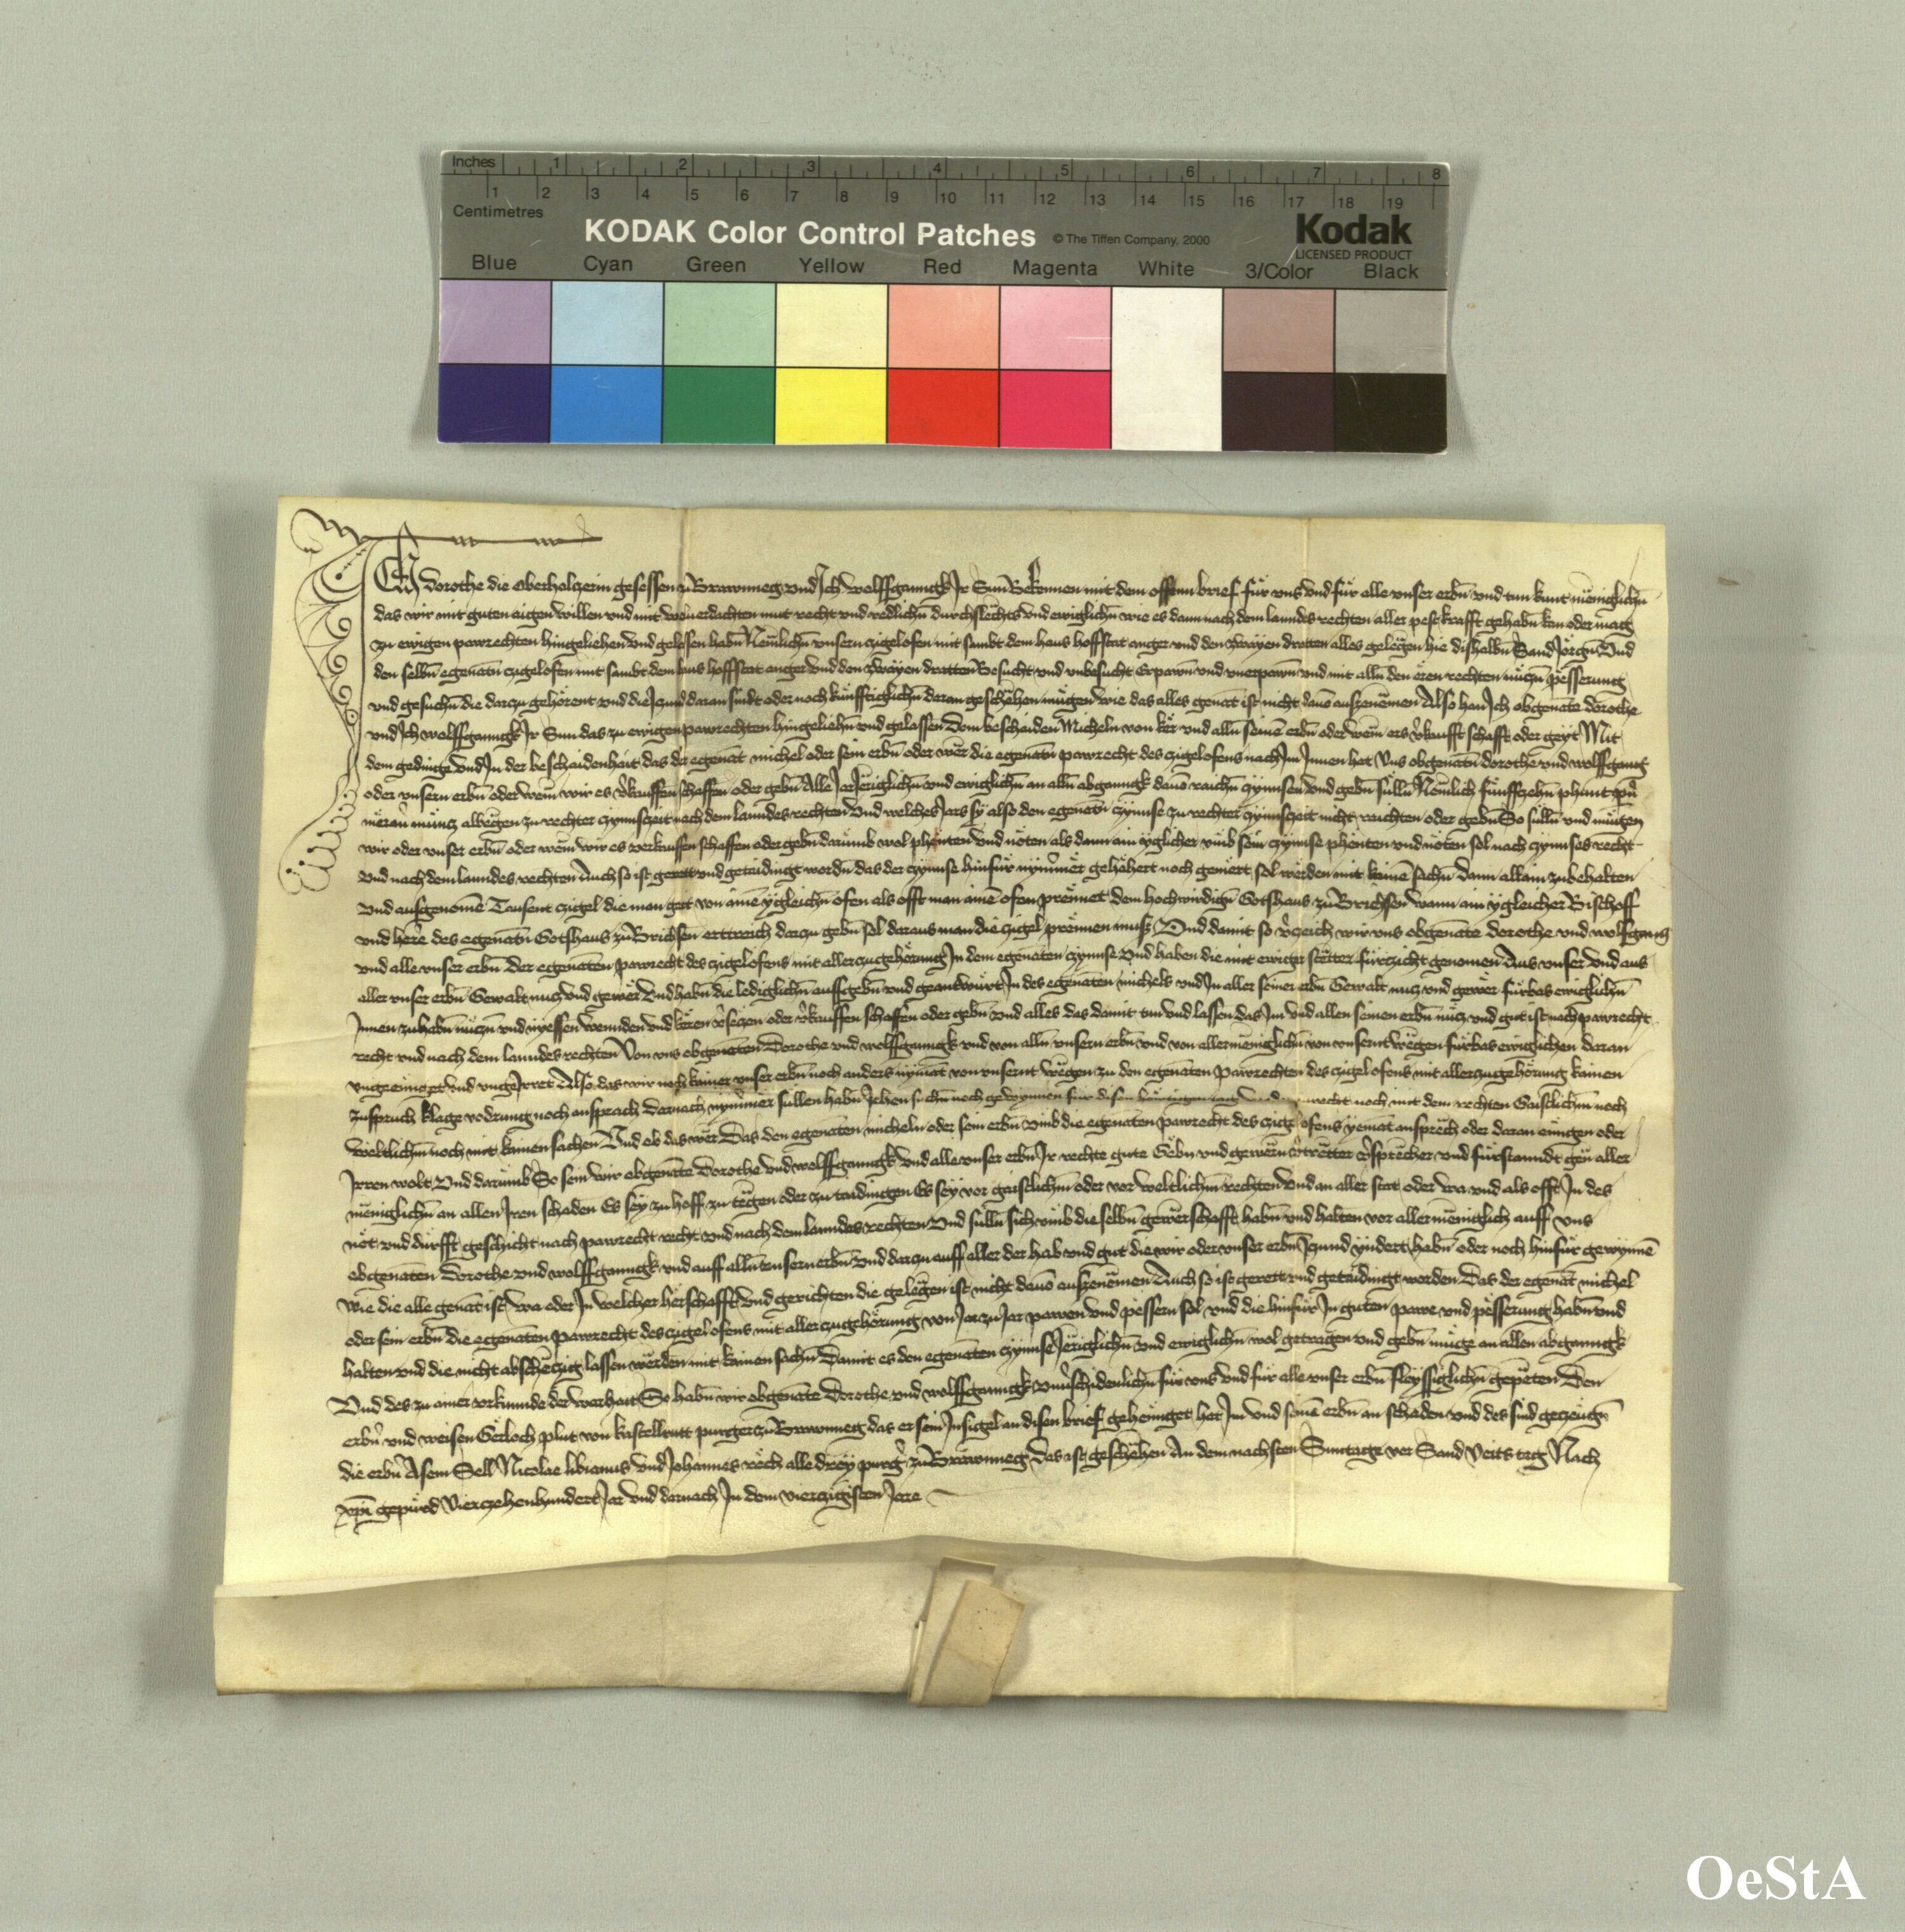 Inches 1 2 3 4 5 6 7 8
1 2 3 4 5 6 7 8 9 10 11 12 13 14 15 16 17 18 19
Centimetres
KODAK Color Control Patches © The Tiffen Company, 2000 Kodak
LICENSED PRODUCT
Blue Cyan Green Yellow Red Magenta White 3/Color Black
Ich dorothe die Oberholczerin gesessen zu Brawnnegg und Ich wolffganngk Ir Sun Bekennen mit dem offenn brief für uns und für alle unser erbn̄ und tun kunt meniglichn̄
das wir mit guten aigen willen und mit wolverdachten mut recht und redlichn̄ durchslechts und ewiglichn̄ wie es dann nach dem lanndes rechten aller pest krafft gehabn̄ kan oder mag
zu ewigen pawrechten hingeliehen und gelassen habn̄ Nemlichn̄ unsern zigelofen mit sambt dem haus hoffstat anger und den zwayen dratten alles gelegen hie dishalbn̄ Sand Jörgn̄ Und
den selbn̄ egenatn̄ zigelofen mit sambt dem haus hoffstat anger und den zwayen dratten Besucht und unbesucht Erpawn̄ und unerpawn̄ und mit alln̄ den eren rechten nüczn̄ pesserung
und gesuchn̄ die darzu gehörent und die Iczund daran sindt oder noch künfftiglichn̄ daran geschehen mügen wie das alles genāt ist nicht davō auszenemen Also han Ich obgenāte dorothe
und Ich wolffganngk Ir Sun das zu ewigen pawrechten hingeliehn̄ und gelassen Dem bescheiden Micheln von ker und alln̄ seinē erbn̄ oder wem ers v̄kaufft schafft oder geyt Mit
dem gedinge und In der bescheidenhait das der egenāt michel oder sein erbn̄ oder wer die egenatn̄ pawrecht des zigelofens nach Im Innen hat Uns obgenatn̄ dorothe und wolffgangk
oder unsern erbn̄ oder wem wir es v̄kauffen schaffen oder gebn̄ Alle Jar Jerichlichn̄ und ewiglichn̄ an alln̄ abganngk davō raichn̄ zynnsen und gebn̄ sülln̄ Nemlich fünffzehn̄ phunt pn̄
meran̄ münz albegen zu rechter zynnszeit nach dem lanndes rechten Und welches Jars sy also den egenatn̄ zynnse zu rechter zynnszeit nicht raichten oder gebn̄ So sülln̄ und mügen
wir oder unser erbn̄ oder wem wir es verkauffen schaffen oder gebn̄ darumb wol phenten und nöten als dann ain yglicher umb sein zynnse phenten und nöten sol nach zynnses recht
und nach dem lanndes rechten Auch so ist gerett und getaidingt wordn̄ das der zynnse hinfür nymmer gehöhert noch gemert sol werden mit kainē sachn̄ dann allain zubehalten
und ausgenomē Tausent zigel die man geit von ainē ygleichn̄ ofen als offt man ainē ofen prennet dem hochwirdign̄ Gotshaus zu Brichsen wann ain ygleicher Bischoff
und herre des egenatn̄ Gotshaus zu Brichsen erttreich darzu gebn̄ sol daraus man die zigel prennen muß Und damit so v̄zeich wir uns obgenāte dorothe und wolfgang
und alle unser erbn̄ Der egenaten pawrecht des zigelofens mit aller zugehörung In dem egenaten zynnse Und haben die mit ewiger stätter fürzicht genomen Aus unser und aus
aller unser erbn̄ Gewalt nucz und gewer Und habn̄ die lediglichn̄ auffgebn̄ und geantwurt In des egenaten michels und In aller seiner erbn̄ Gewalt nucz und gewer fürbas ewiglichn̄
Innen zu habn̄ nüczn̄ und nyessen wennden und keren v̄seczen oder v̄kauffen schaffen oder gebn̄ und alles das damit tun und lassen das Im und allen seinen erbn̄ nücz und gut ist nach pawrecht
recht und nach dem lanndes rechten Von uns obgenaten Dorothe und wolffganngk und von alln̄ unsern erbn̄ und von allermeniglichn̄ von unsernt wegen fürbas ewiglichen daran
ungeeinngt und ungeirret Also das wir noch kainer unser erbn̄ noch anders nymāt von unsernt wegen zu den egenaten pawrechten des zigelofens mit aller zugehörung kainen
zuspruch klage vodrung noch ansprach Darnach nymmer süllen habn̄ Jehen suchn̄ noch gewynnen recht noch mit dem rechten Gaistlichn̄ noch
weltlichn̄ noch mit kainen sachen Und ob das wer Das den egenaten micheln oder sein erbn̄ umb die egenaten pawrecht des zigelofens yemāt ansprech oder daran ennngen oder
Irren wolt Und darumb So sein wir obgenāte Dorothe und wolffganngk und alle unser erbn̄ Ir rechte gute Gebn̄ und gewern v̄tretter v̄sprecher und fürstanndt gen aller
meniglichn̄ an allen Iren schaden Es sey zu hoff zu tegen oder zu taidingen Es sey vor gaistlichn̄ oder vor weltlichn̄ rechten und an aller stat oder wa und als offt In des
not und dürfft geschicht nach pawrecht recht und nach dem lanndes rechten Und sülln̄ sich umb die selbn̄ gewerschafft habn̄ und halten vor allermeniglich auff uns
obgenaten Dorothe und wolffganngk und auff alln̄ unsern erbn̄ und darzu auff aller der hab und gut die wir oder unser erbn̄ Iczund yndert habn̄ oder noch hinfür gewynnē
wie die alle genāt ist wa oder In welcher herschafft und gerichten die gelegen ist nicht davō auszenemen Auch so ist gerett und getaidingt worden Das der egenāt michel
oder sein erbn̄ die egenaten pawrecht des zigelofens mit aller zugehörung von Jar zu Jar pawen und pessern sol und die hinfür In guten pawe und pesserung habn̄ und
halten und die nicht abschenzig lassen werden mit kainen sachn̄ Damit es den egenaten zynnse Jeriglichn̄ und ewiglichn̄ wol getragen und gebn̄ müge an allen abganngk
Und des zu ainer urkunnde der warhait So habn̄ wir obgenāte Dorothe und wolffganngk unv̄schidenlichn̄ für uns und für alle unser erbn̄ fleyssiglichn̄ gepeten Den
erbn̄ und weisen Gerloch plut von kastellrutt purger zu Brawnnegg das er sein Insigel an disen brief gehennget hat Im und seinē erbn̄ an schaden und des sind gezeugē
die erbn̄ Asem Sell Nicolae libianus und Johannes rech alle drey purḡ zu Brawnnegg Das ist geschehen An dem nachsten Sunntage vor Sand Veits tag Nach
xp̄i gepurd Vierzehenhundert Jar und darnach In dem vierzigisten Jare
OeStA